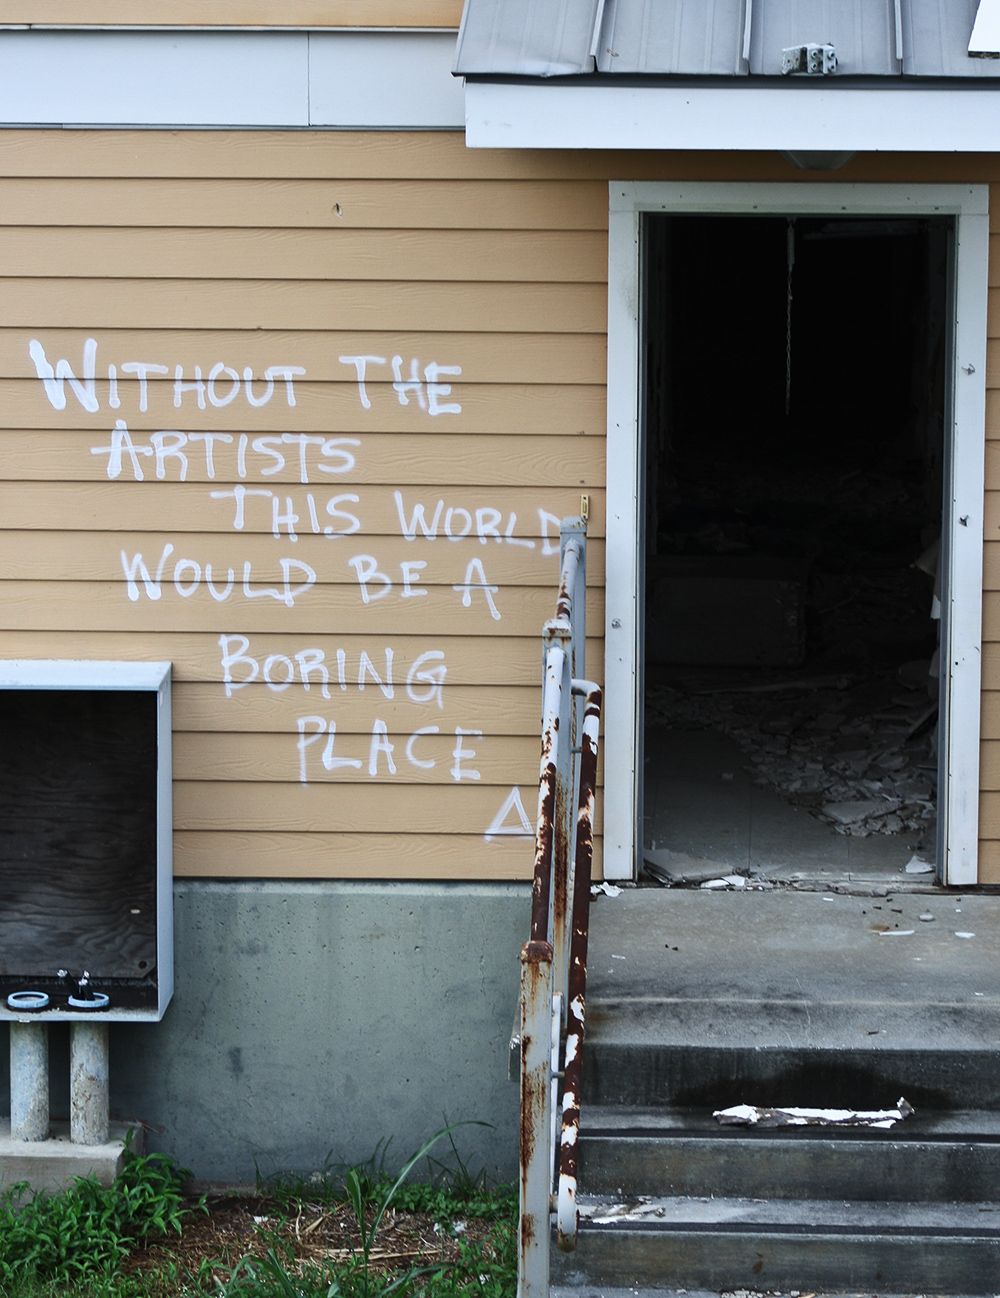 WITHOUT THE
ARTISTS
THIS WORLD
WOULD BE A
BORING
PLACE